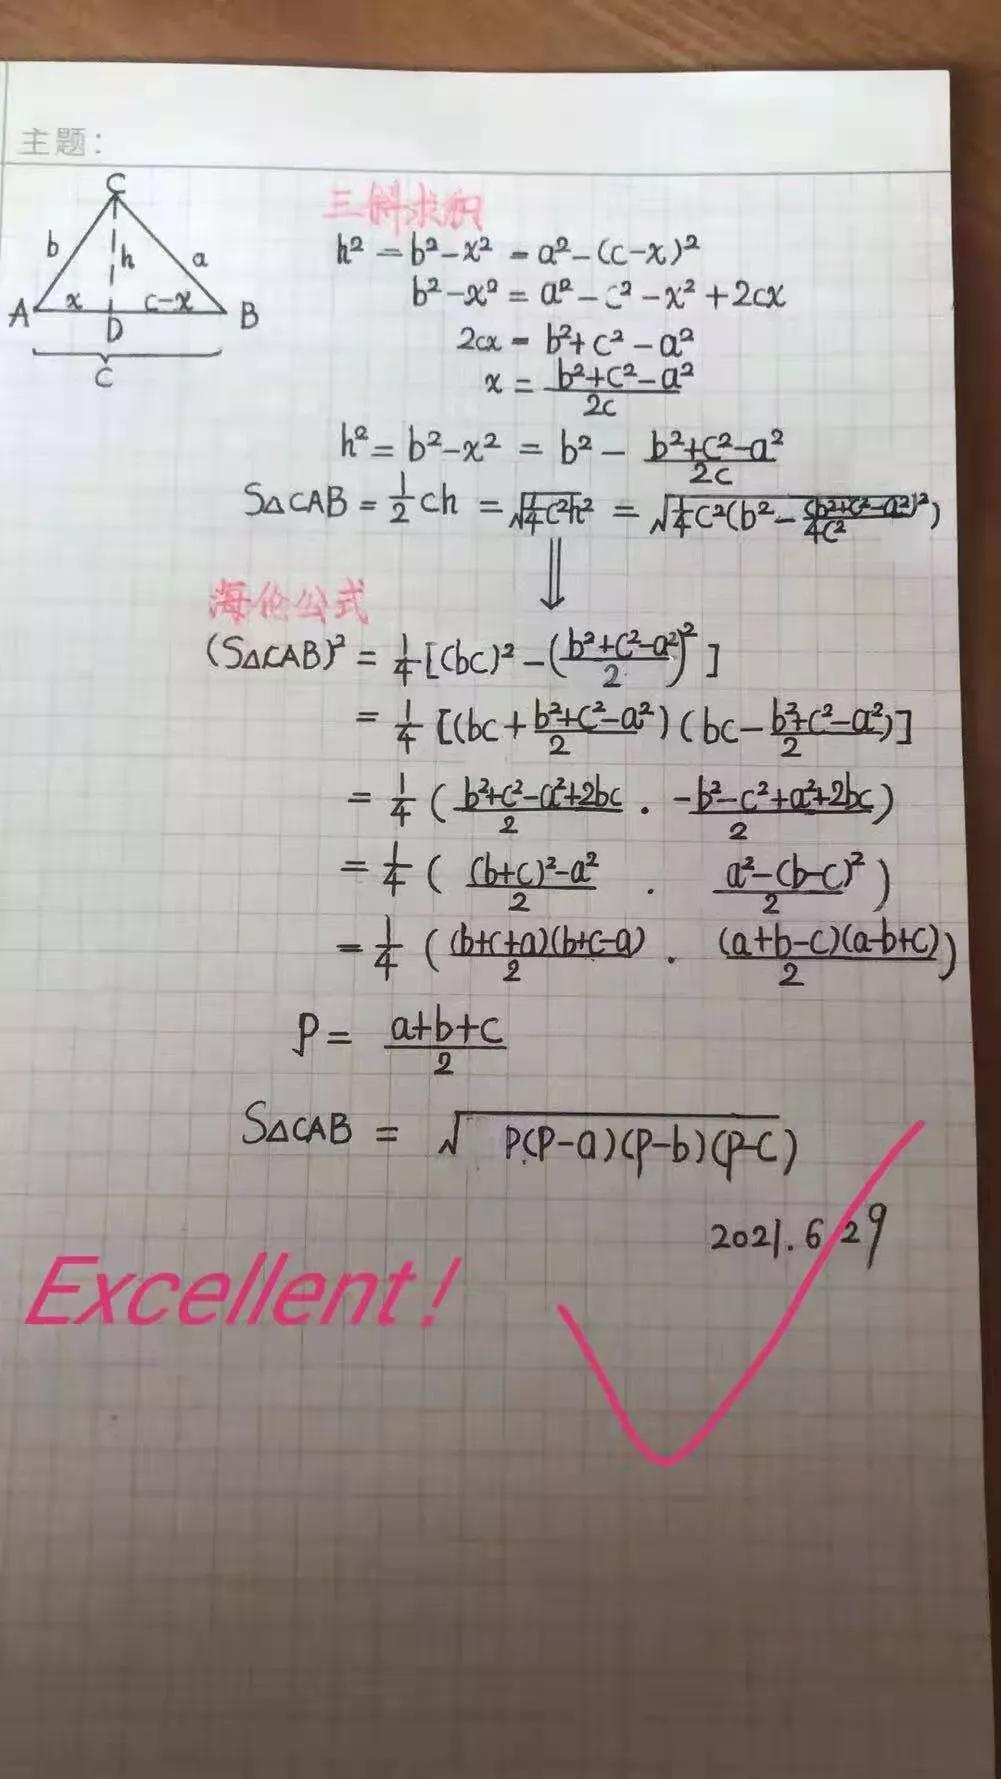 主题:
C
b
h
a
A
x
c-x
B
D
C
三斜求积
h² = b²-x² = a²-(c-x)²
b²-x² = a²-c²-x²+2cx
2cx = b²+c²-a²
x = (b²+c²-a²)/2c
h² = b²-x² = b² - (b²+c²-a²)/2c
S△CAB = 1/2 ch = √(1/4 c²h²) = √(1/4 c²(b² - (b²+c²-a²)²/4c²))
⇓
海伦公式
(S△CAB)² = 1/4 [(bc)² - ((b²+c²-a²)/2)²]
= 1/4 [(bc + (b²+c²-a²)/2)(bc - (b²+c²-a²)/2)]
= 1/4 ((b²+c²-a²+2bc)/2 · (-b²-c²+a²+2bc)/2)
= 1/4 (((b+c)²-a²)/2 · (a²-(b-c)²)/2)
= 1/4 ((b+c+a)(b+c-a)/2 · (a+b-c)(a-b+c)/2)
P = (a+b+c)/2
S△CAB = √(P(P-a)(P-b)(P-C))
2021.6 29
Excellent!